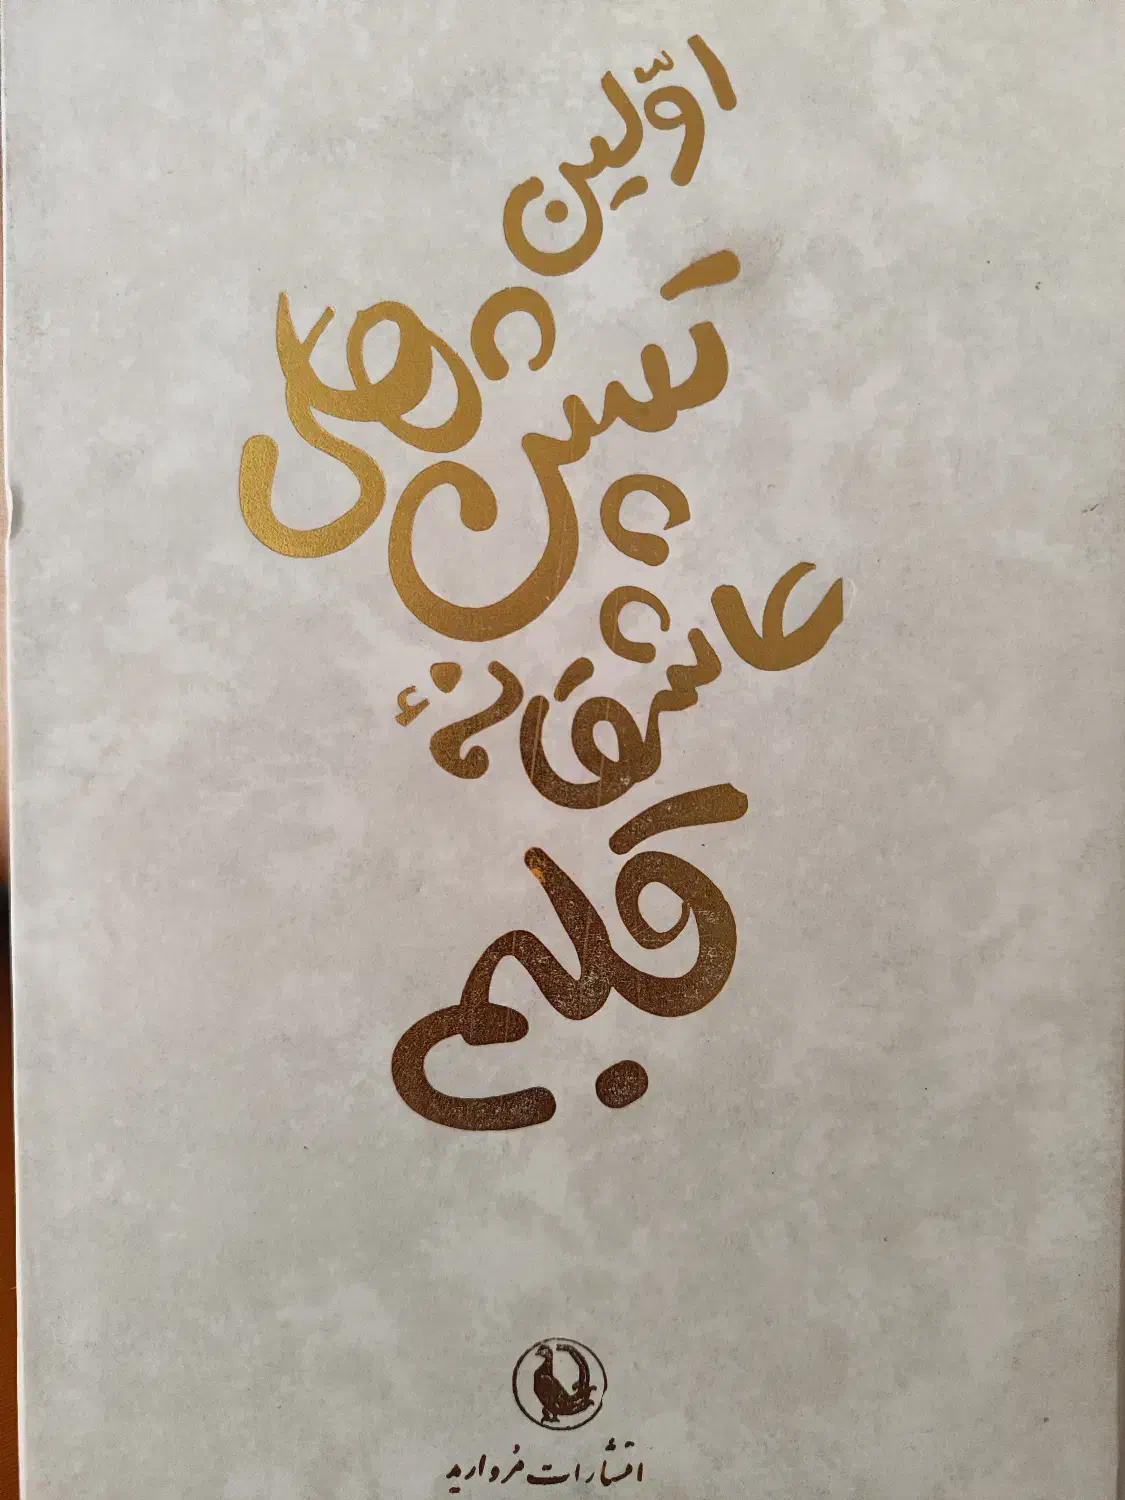 اوّلین
تپش های
عاشقانهٔ
قلبم
انتشارات مُروارید